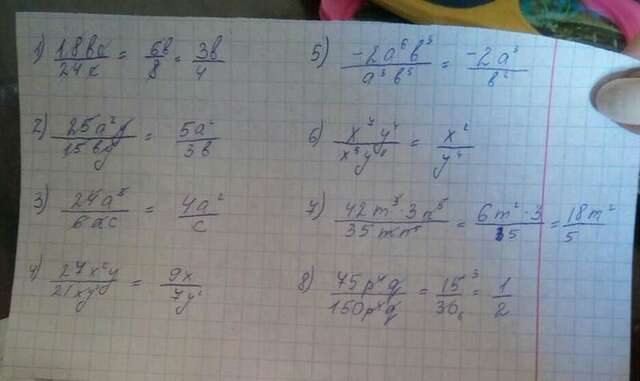 1) 18bx/24x = 6b/8 = 3b/4
2) 25a²y/15by = 5a²/3b
3) 24a³/6ac = 4a²/c
4) 27x²y/21xy² = 9x/7y
5) -2a⁶b³/a³b⁵ = -2a³/b²
6) x⁷y⁴/x⁵y⁸ = x²/y⁴
7) 42m³·3n⁵/35mn⁵ = 6m²·3/5 = 18m²/5
8) 75p⁴q/150p⁴q = 15/30 = 3/6 = 1/2